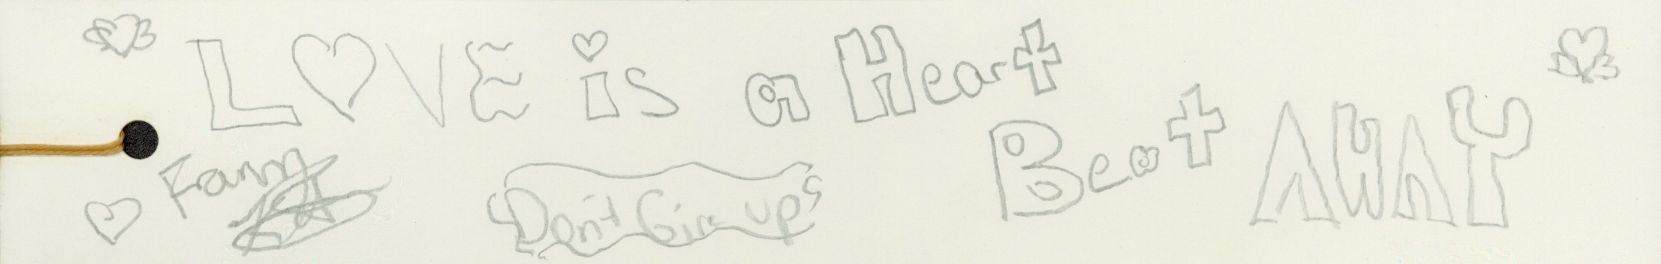 LOVE is a Heart
Beat AWAY
Fanny
Don't Give up